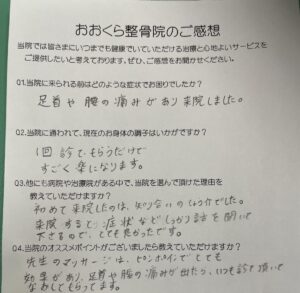 おおくら整骨院のご感想
当院では皆さまにいつまでも健康でいていただける治療と心地よいサービスを
ご提供したいと考えております。ぜひ、ご感想をお聞かせください。
Q1.当院に来られる前はどのような症状でお困りでしたか？
足首や腰の痛みがあり来院しました。
Q2.当院に通われて、現在のお身体の調子はいかがですか？
1回診てもらうだけで
すごく楽になります。
Q3.他にも病院や治療院がある中で、当院を選んで頂けた理由を
教えていただけますか？
初めて来院したのは、知り合いのしょう介でした。
来院すると、症状などしっかり話を聞いて
下さるので、とても良かったです。
Q4.当院のオススメポイントがございましたら教えていただけますか？
先生のマッサージは、ピンポイントでとても
効果があり、足首や腰の痛みが出たら、いつも診て頂いて
なおしてもらってます。